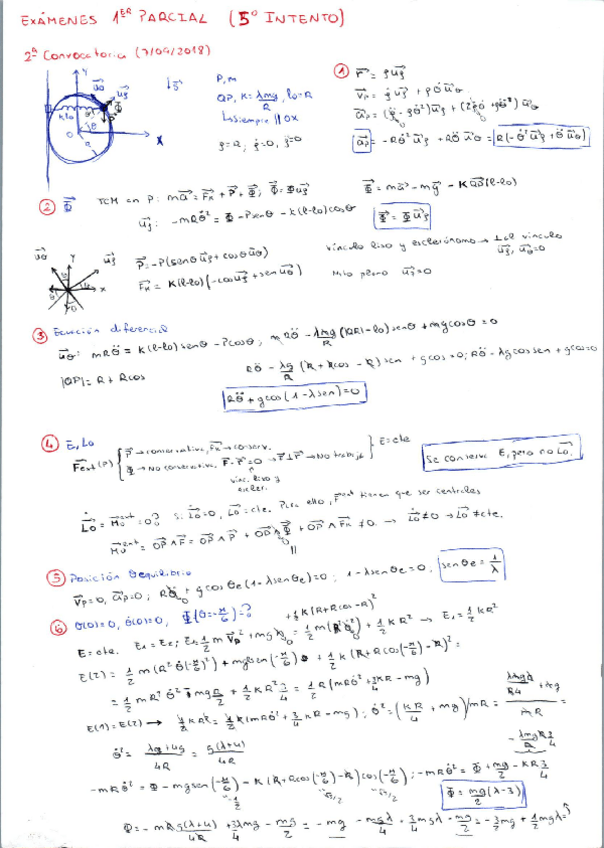 EXÁMENES 1ER PARCIAL (5º INTENTO)
2ª Convocatoria (7/09/2018)
P, m
QP, K = λmg/R, l₀=R
↳siempre || OX
ρ=R; ρ̇=0, ρ̈=0
① r⃗ = ρu⃗ρ
v⃗p = ρ̇u⃗ρ + ρθ̇u⃗θ
a⃗p = (ρ̈ - ρθ̇²)u⃗ρ + (2ρ̇θ̇ + ρθ̈)u⃗θ
a⃗p = -Rθ̇²u⃗ρ + Rθ̈u⃗θ = R(-θ̇²u⃗ρ + θ̈u⃗θ)
② Φ⃗
TCM en P: ma⃗ = F⃗k + P⃗ + Φ⃗; Φ⃗ = Φu⃗ρ
Φ⃗ = ma⃗ - mg⃗ - KQP⃗(l-l₀)
u⃗ρ: -mRθ̇² = Φ - Psenθ - K(l-l₀)cosθ
Φ⃗ = Φu⃗ρ
P⃗ = -P(senθu⃗ρ + cosθu⃗θ)
F⃗k = K(l-l₀)(-cosu⃗ρ + senu⃗θ)
vínculo liso y esclerónomo → ⊥ al vínculo
u⃗ρ, u⃗θ=0
③ Ecuación diferencial
u⃗θ: mRθ̈ = K(l-l₀)senθ - Pcosθ; mRθ̈ - λmg/R (|QP|-l₀)senθ + mgcosθ = 0
|QP| = R + Rcos
Rθ̈ - λg/R (R + Rcos - R)sen + gcos = 0; Rθ̈ - λgcossen + gcos=0
Rθ̈ + gcos(1-λsen)=0
④ E, L₀
P⃗ → conservativa, F⃗k → conserv.
F⃗ext(P)
Φ → No conservativa. F⃗·r⃗=0 → F⃗⊥r⃗ → No trabaja
E = cte
vinc. liso y escler.
Se conserva E, pero no L⃗₀.
L⃗₀ = M⃗₀ext = 0? Si L⃗₀=0, L⃗₀=cte. Para ello, F⃗ext tienen que ser centrales
M⃗₀ext = OP⃗∧F⃗ = OP⃗∧P⃗ + OP⃗∧Φ⃗ + OP⃗∧F⃗k ≠0. → L⃗₀≠0 → L⃗₀≠cte.
⑤ Posición θequilibrio
v⃗p=0, a⃗p=0; Rθ̈ + gcosθe(1-λsenθe)=0; 1-λsenθe=0, senθe = 1/λ
⑥ θ(0)=0, θ̇(0)=0, Φ(θ=-π/6)=?
+½K(R+Rcos-R)²
E = cte. E₁ = E₂; E₁ = ½mv⃗p² + mg = ½m(Rθ̇²) + ½KR² → E₁ = ½KR²
E(2) = ½m(R²θ̇(-π/6)²) + mgRsen(-π/6) + ½k(R+Rcos(-π/6)-R)² =
= ½mR²θ̇² - mgR/2 + ½KR²¾ = ½R(mRθ̇² + ¾KR - mg)
E(1)=E(2) → ½KR² = ½R(mRθ̇² + ¾KR - mg); θ̇² = (KR/4 + mg)/mR =
θ̇² = λg+4g/4R = g(λ+4)/4R
-mRθ̇² = Φ - mgsen(-π/6) - K(R+Rcos(-π/6)-R)cos(-π/6); -mRθ̇² = Φ + mg/2 - KR¾
Φ = mg/2 (λ-3)
Φ = -mRg(λ+4)/4R + ¾λmg - mg/2 = -mg - mgλ/4 + ¾mgλ - mg/2 = -3/2mg + ½mgλ